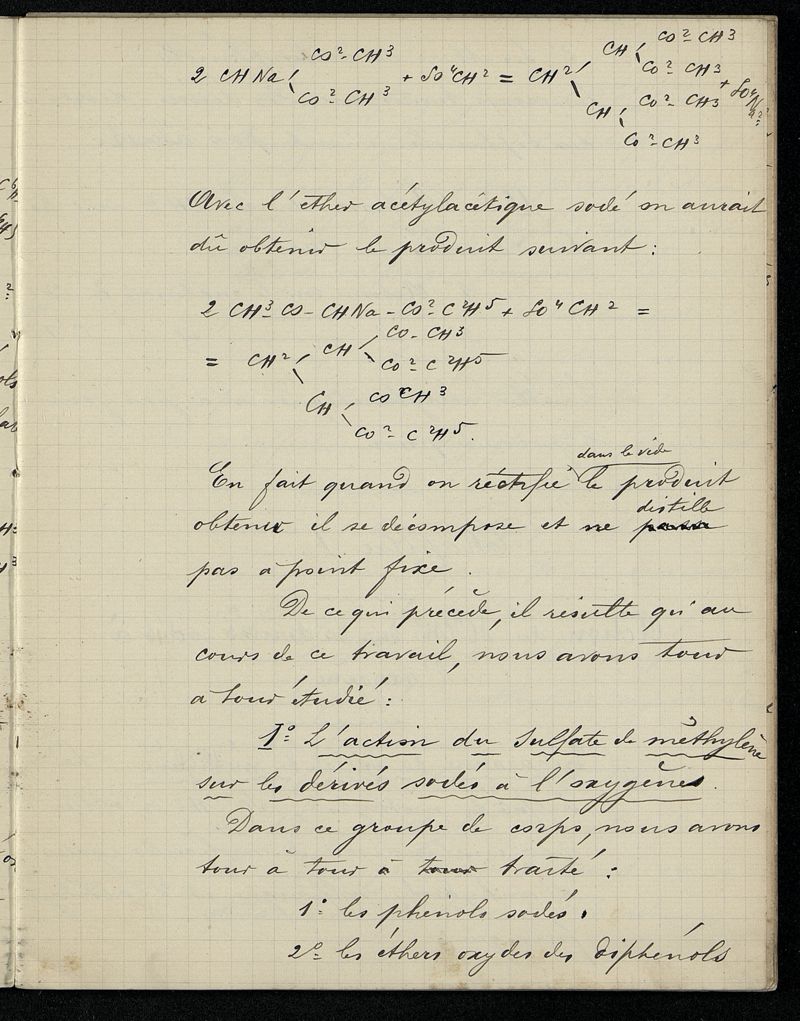 CO²-CH³ CH CO²-CH³
2 CHNa + SO⁴CH² = CH² CO²-CH³ + SO⁴Na²
CO²-CH³ CH CO²-CH³
CO²-CH³
Avec l'éther acétylacétique sodé on aurait
dû obtenir le produit suivant :
2 CH³-CO-CHNa-CO²-C²H⁵ + SO⁴CH² =
CO-CH³
= CH² CH CO²-C²H⁵
CH CO CH³
CO²-C²H⁵.
dans le vide
En fait quand on réctifie le produit
distille
obtenu il se décompose et ne
pas à point fixe.
De ce qui précède, il résulte qu'au
cours de ce travail, nous avons tour
a tour étudié :
1° L'action du sulfate de méthylène
sur les dérivés sodés à l'oxygène.
Dans ce groupe de corps, nous avons
tour à tour à tour traité :
1° les phénols sodés.
2° les éthers oxydes des diphénols